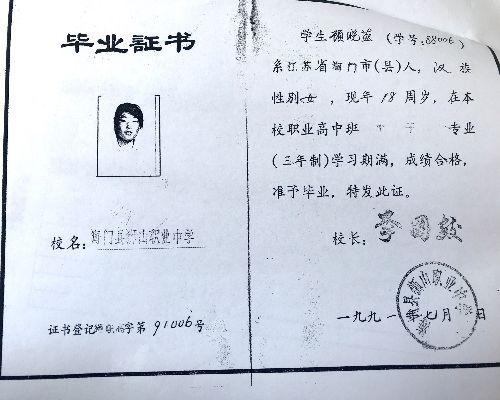 毕业証书
校名：海门县狮山职业中学
证书登记 字第91006号
学生顾晚蓝（学号：88006）
系江苏省海门市（县）人，汉族
性别女，现年18周岁，在本
校职业高中班 专业
（三年制）学习期满，成绩合格，
准予毕业，特发此证。
校长：
一九九一年七月 日